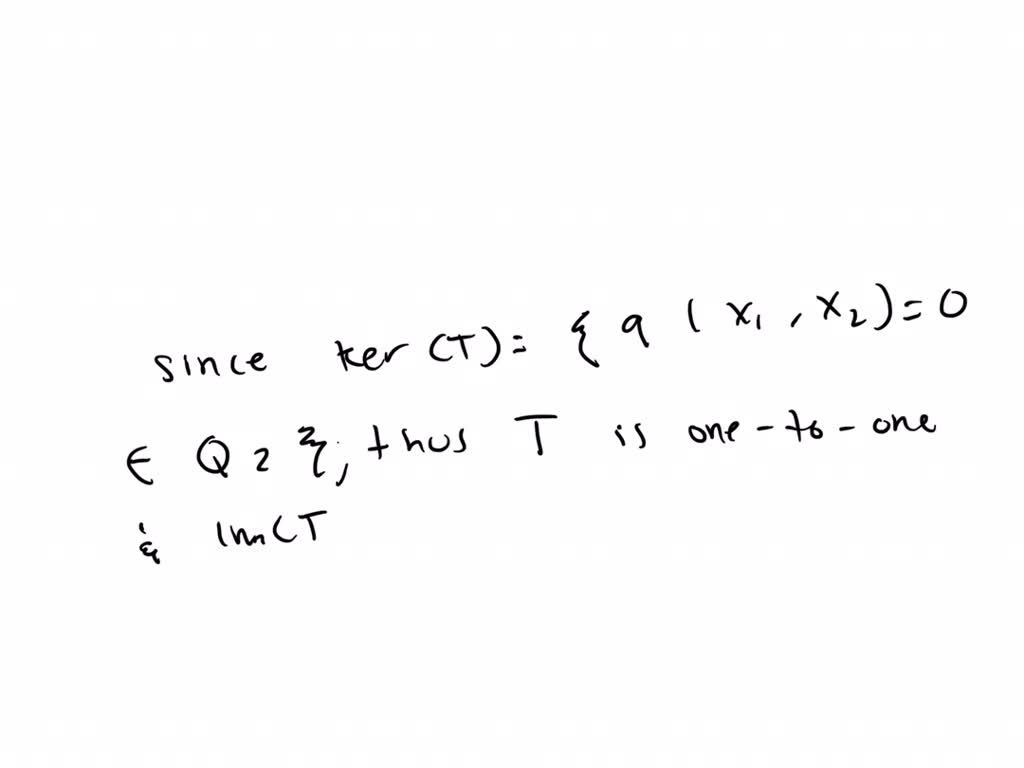 since ker (T) = { q ( x₁ , x₂ ) = 0
∈ Q₂ }, thus T is one-to-one
& Im(T